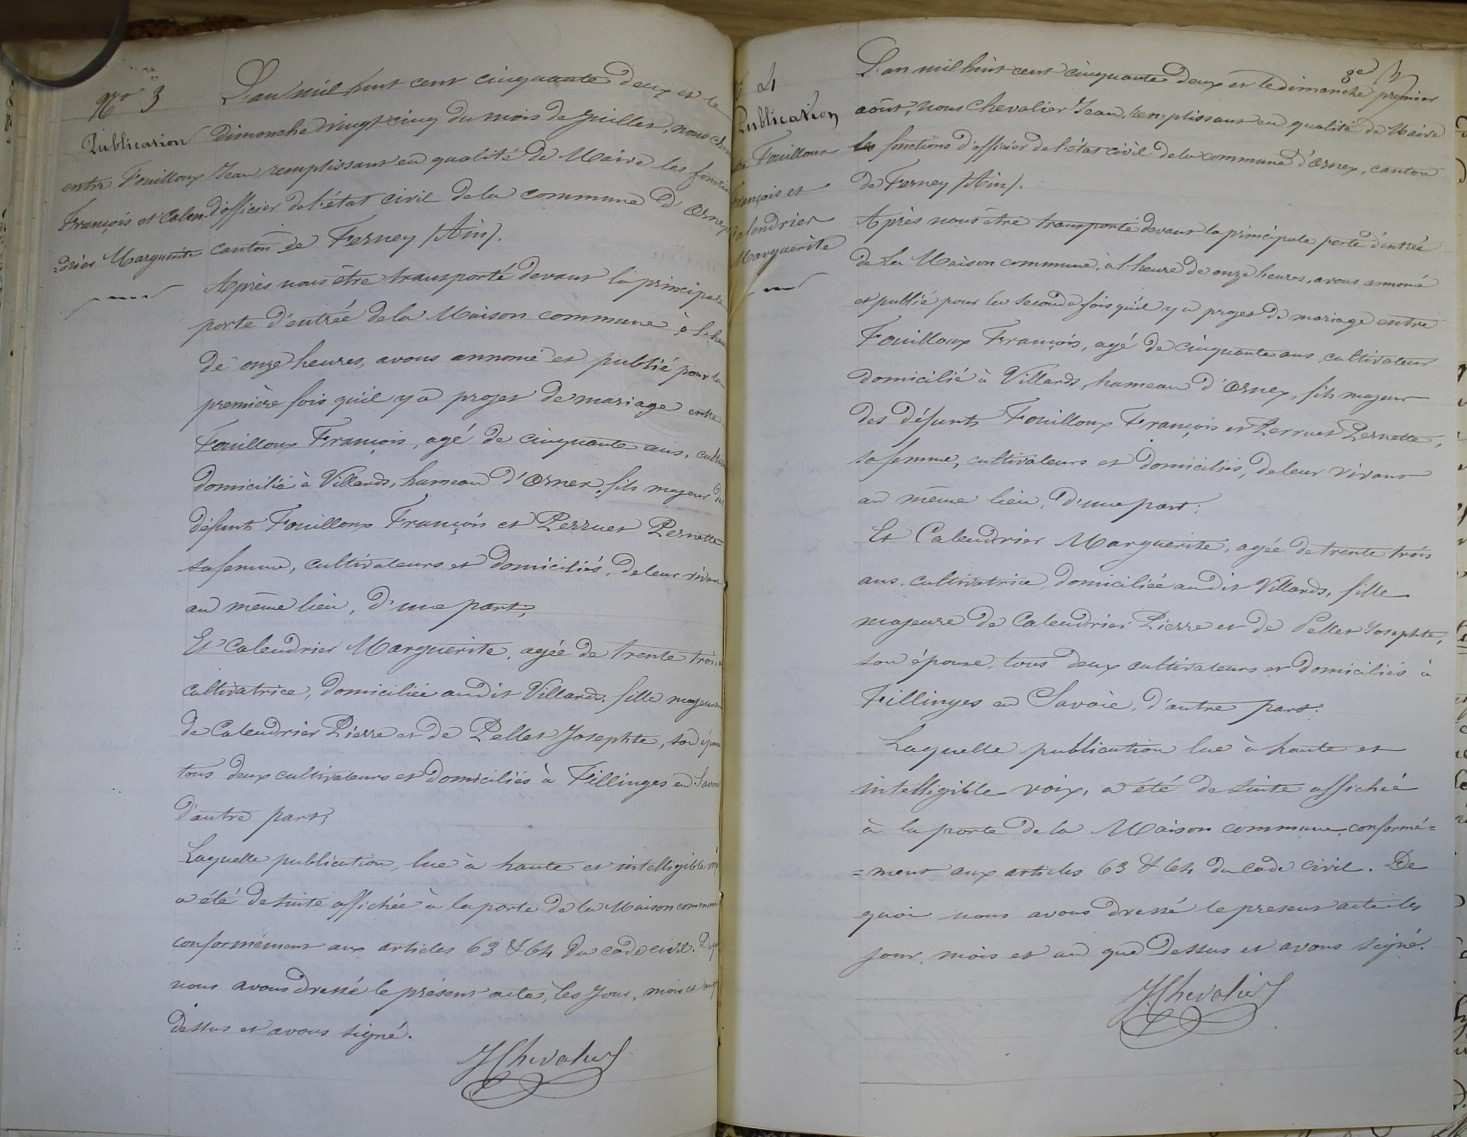 No 3
Publication
entre Fouilloux
François et Calen
=drier Marguerite
L'an mil huit cent cinquante deux et le
Dimanche vingt cinq du mois de Juillet, nous
Jean remplissant en qualité de Maire les
d'officier de l'état civil de la commune d'Ornex
canton de Ferney (Ain).
Après nous être transporté devant la principale
porte d'entrée de la Maison commune à
de onze heures, avons annoncé et publié pour la
première fois qu'il y a projet de mariage entre
Fouilloux François, agé de cinquante ans,
domicilié à Villards, hameau d'Ornex, fils majeur
défunts Fouilloux François et Perruet Pernette
sa femme, cultivateurs et domiciliés, de leur
au même lieu, d'une part,
Et Calendrier Marguerite, agée de trente trois
cultivatrice, domiciliée audit Villards, fille majeure
de Calendrier Pierre et de Pellet Josephte, son
tous deux cultivateurs et domiciliés à Fillinges en
d'autre part,
Laquelle publication, lue à haute et intelligible
a été de suite affichée à la porte de la Maison commune
conformément aux articles 63 & 64 du code civil.
nous avons dressé le présent acte, les jour, mois et
dessus et avons signé.
J Chevalier
4
Publication
Fouilloux
François et
Calendrier
Marguerite
L'an mil huit cent cinquante deux et le dimanche premier
août, nous Chevalier Jean, remplissant en qualité de Maire
les fonctions d'officier de l'état civil de la commune d'Ornex, canton
de Ferney (Ain).
Après nous être transporté devant la principale porte d'entrée
de la Maison commune, à l'heure de onze heures, avons annoncé
et publié pour la seconde fois qu'il y a projet de mariage entre
Fouilloux François, agé de cinquante ans, cultivateur
domicilié à Villards, hameau d'Ornex, fils majeur
des défunts Fouilloux François et Perruet Pernette,
sa femme, cultivateurs et domiciliés, de leur vivant
au même lieu, d'une part.
Et Calendrier Marguerite, agée de trente trois
ans, cultivatrice, domiciliée audit Villards, fille
majeure de Calendrier Pierre et de Pellet Josephte,
son épouse, tous deux cultivateurs et domiciliés à
Fillinges en Savoie, d'autre part.
Laquelle publication lue à haute et
intelligible voix, a été de suite affichée
à la porte de la Maison commune conformé=
=ment aux articles 63 & 64 du code civil. De
quoi nous avons dressé le présent acte les
jour, mois et an que dessus et avons signé.
J Chevalier